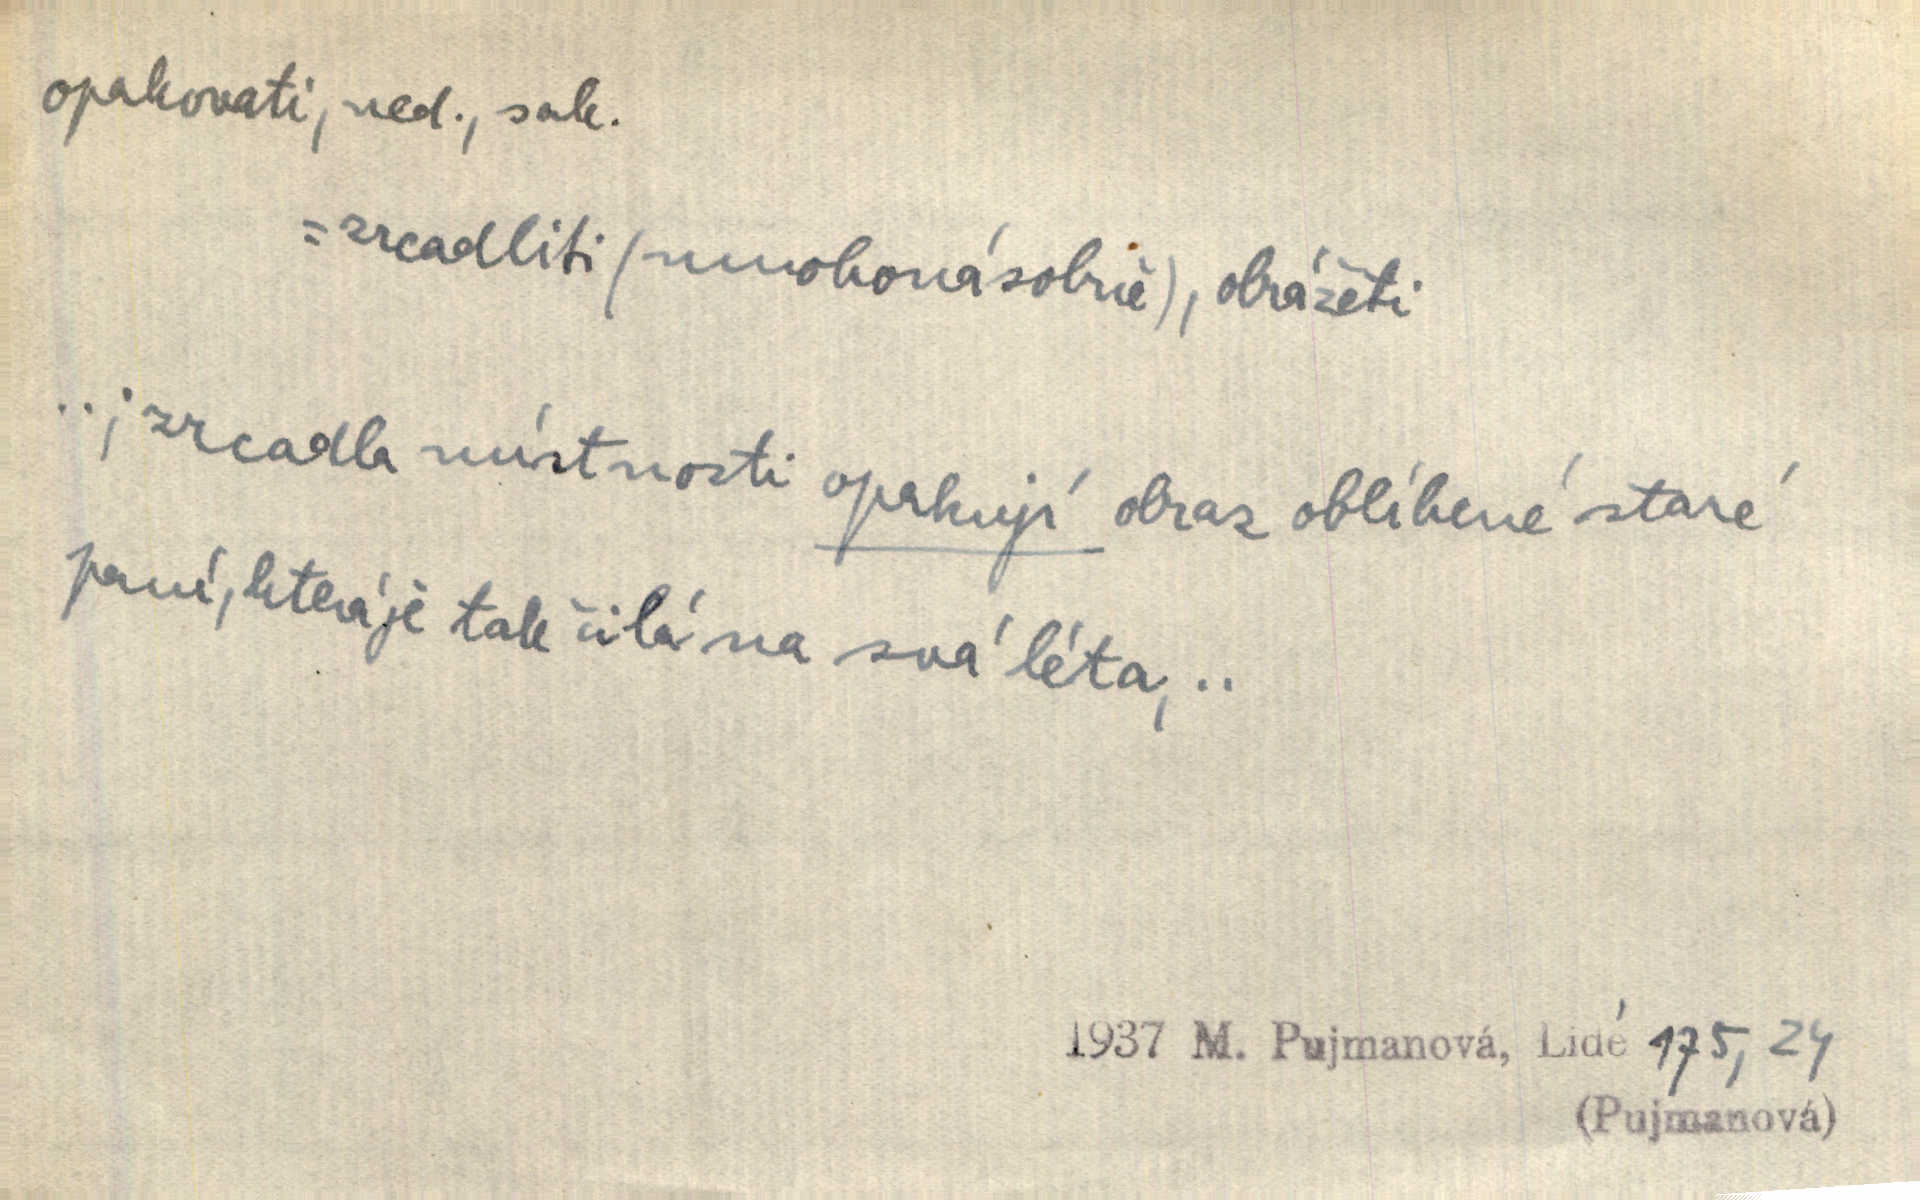 opakovati, ned., sak.
= zrcadliti (mnohonásobně), obrážeti
..; zrcadla místnosti opakují obraz oblíbené staré
paní, která je tak čilá na svá léta, ..
1937 M. Pujmanová, Lidé 175, 24
(Pujmanová)